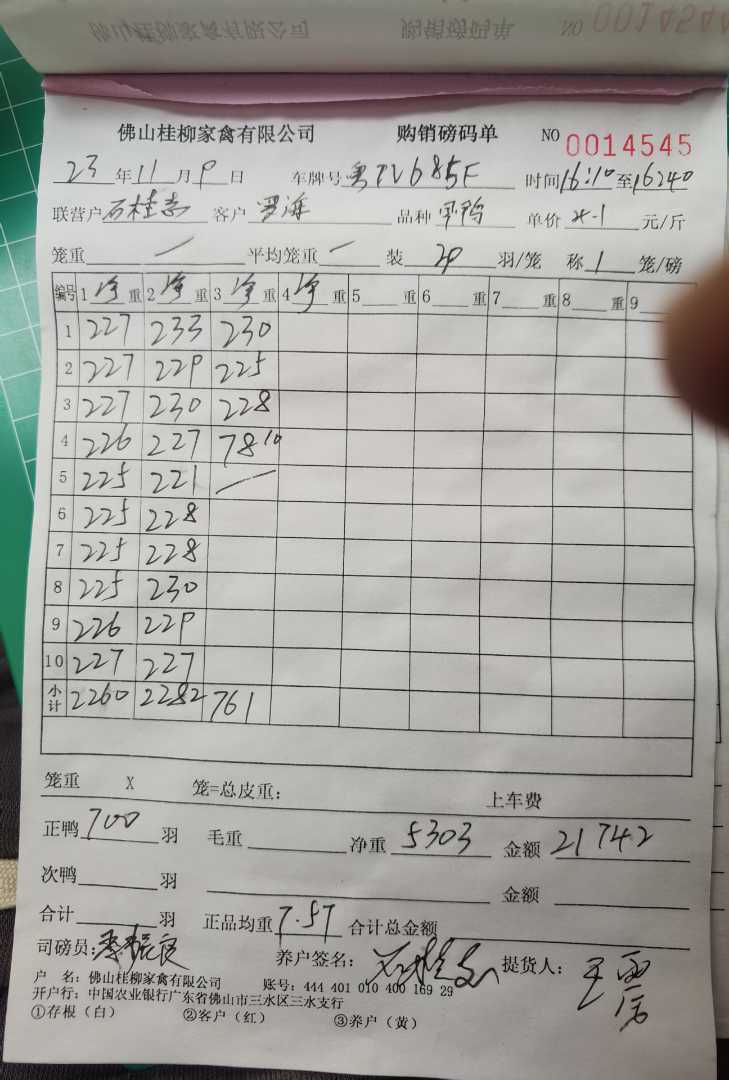 佛山桂柳家禽有限公司 购销磅码单 NO 0014544
佛山桂柳家禽有限公司 购销磅码单 NO 0014545
23年11月9日 车牌号 粤TV685F 时间16:10至16:40
联营户 石桂志 客户 罗海 品种 单价 4.1 元/斤
笼重 / 平均笼重 / 装 29 羽/笼 称 1 笼/磅
编号 1 净 重 2 净 重 3 净 重 4 净 重 5 重 6 重 7 重 8 重 9
1 227 233 230
2 227 229 225
3 227 230 228
4 226 227 78 10
5 225 221 /
6 225 228
7 225 228
8 225 230
9 226 229
10 227 227
小计 2260 2282 761
笼重 X 笼=总皮重： 上车费
正鸭 700 羽 毛重 净重 5303 金额 21742
次鸭 羽 金额
合计 羽 正品均重 7.57 合计总金额
司磅员： 养户签名：石桂志 提货人：
户 名：佛山桂柳家禽有限公司 账号：444 401 010 400 169 29
开户行：中国农业银行广东省佛山市三水区三水支行
①存根（白） ②客户（红） ③养户（黄）